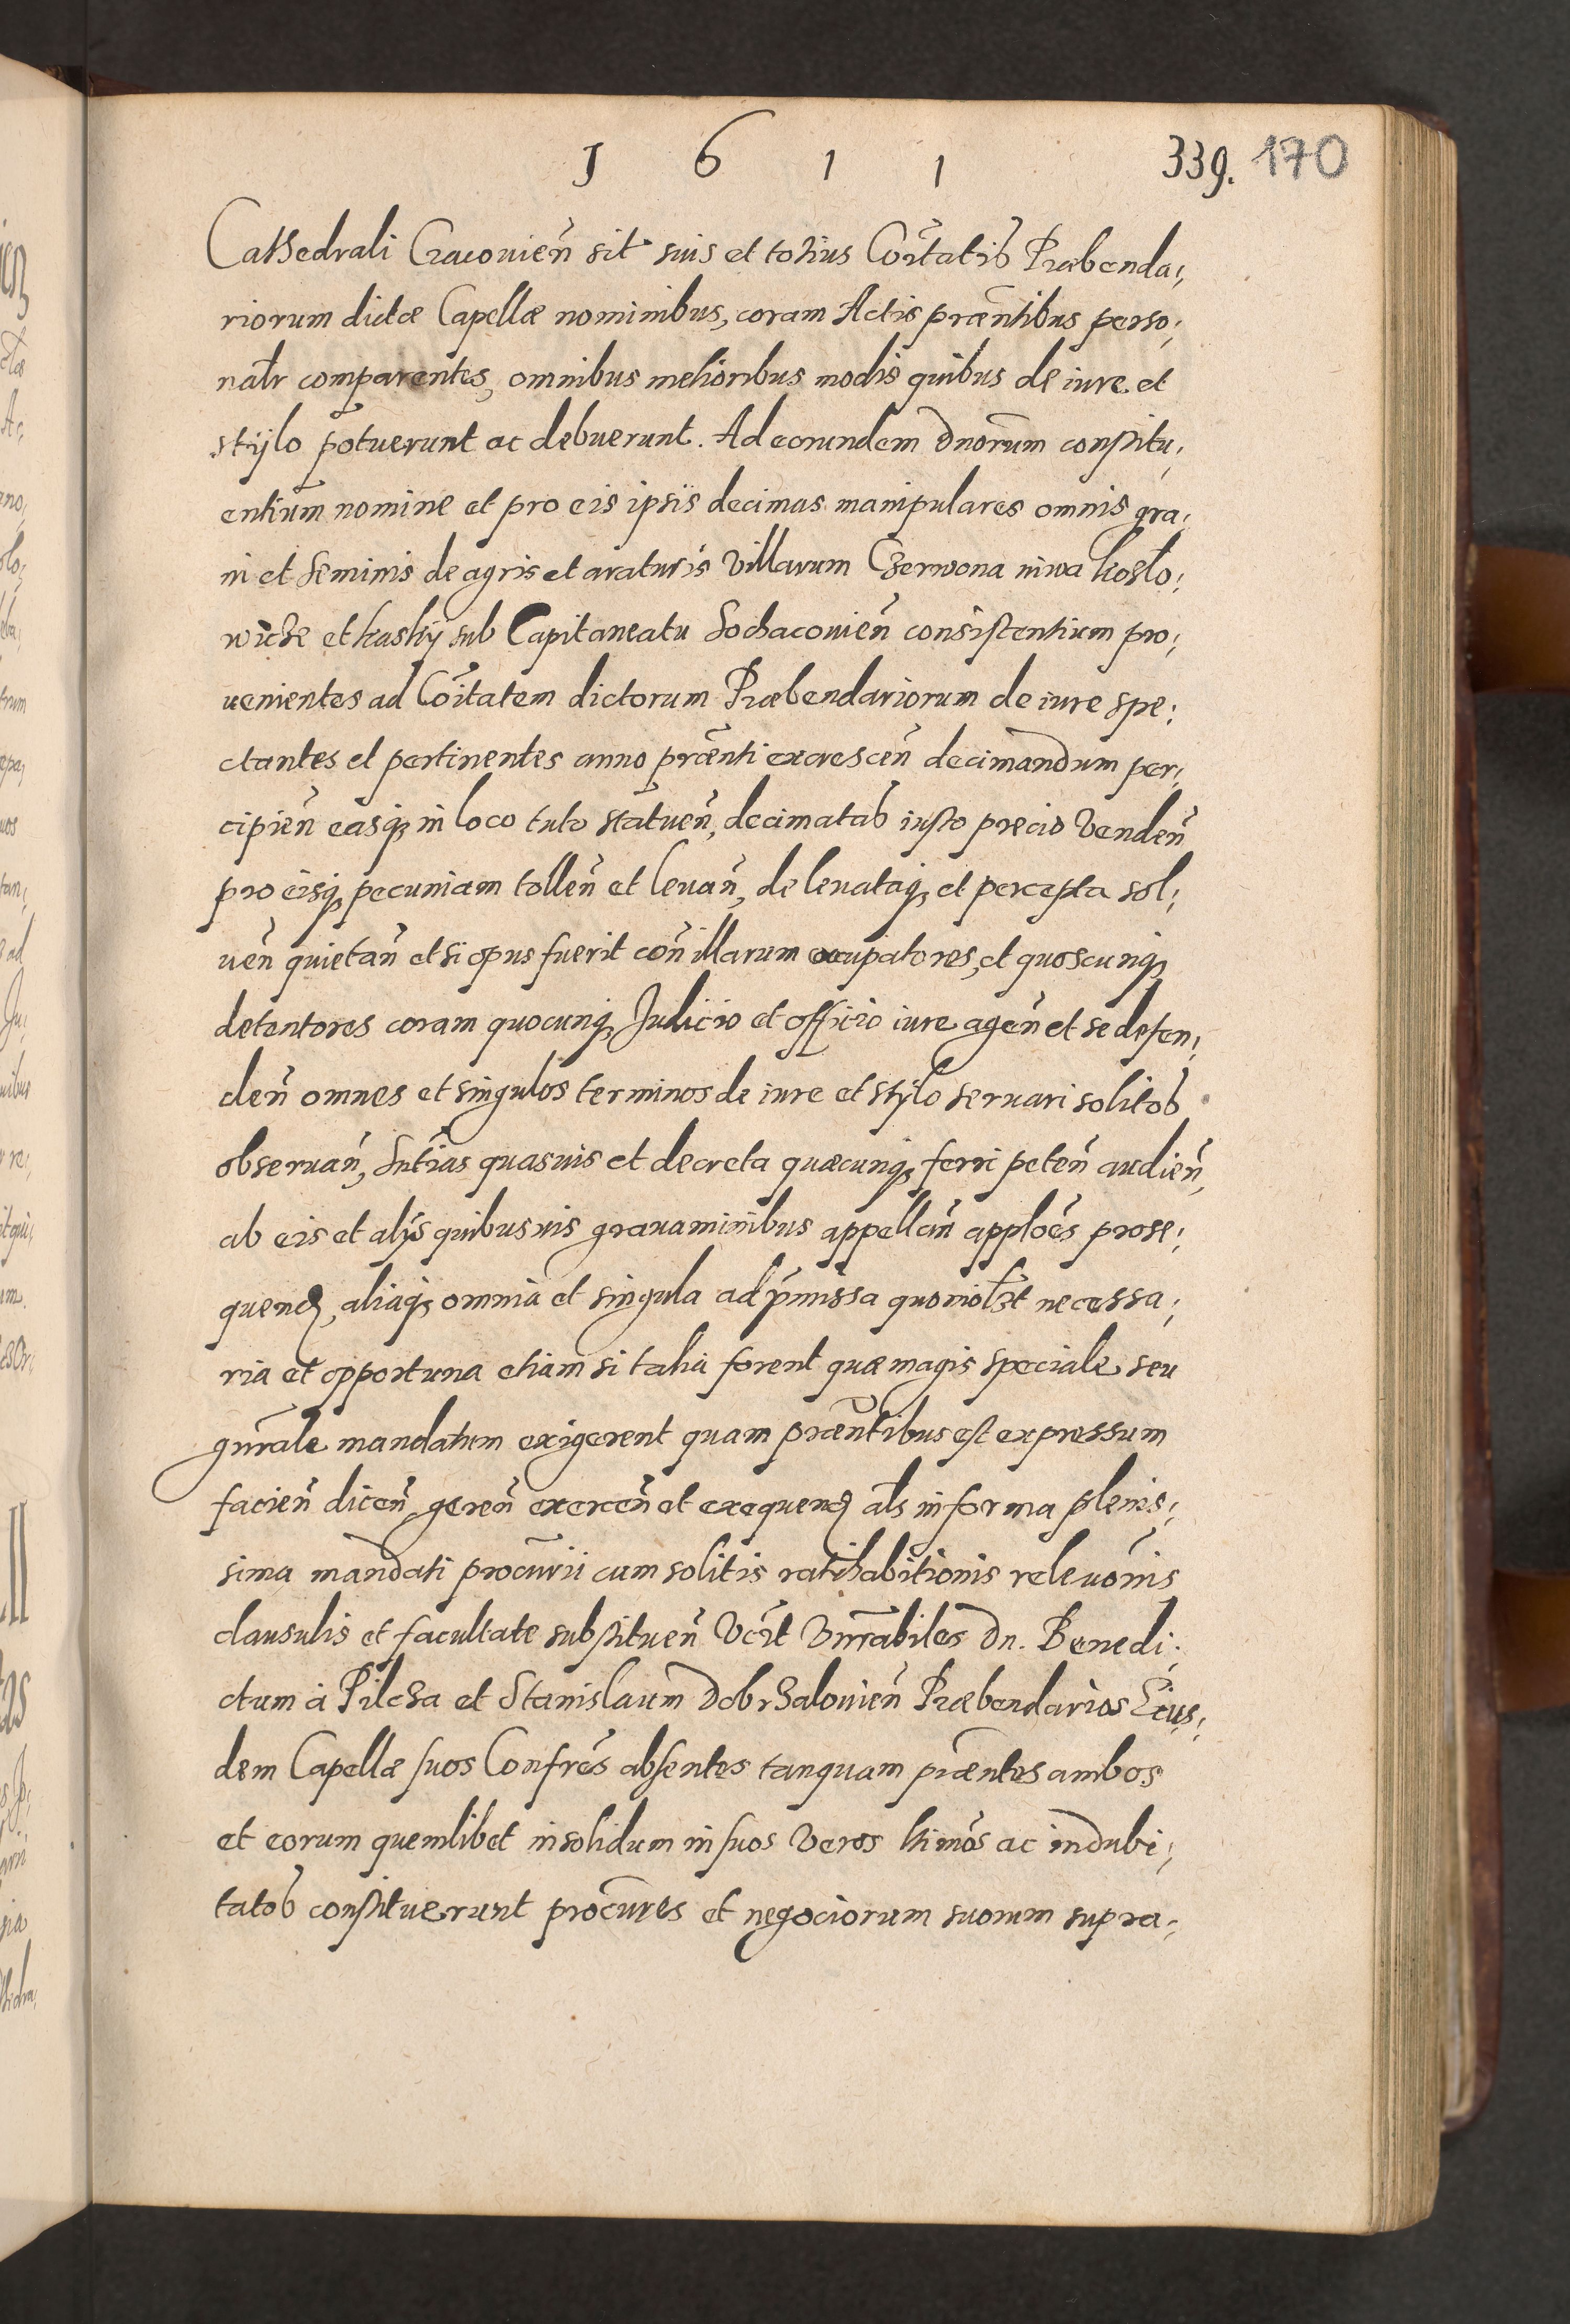 1 6 1 1 339. 170
Cathedrali Cracouień sit suis et totius Cōitatis Præbenda;
riorum dictæ Capellæ nominibus, coram Actis præntibus perso;
naĺr comparentes, omnibus melioribus modis quibus de iure et
stÿlo potuerunt ac debuerunt. Ad eorundem dnorum constitu;
entium nomine et pro eis ipsis decimas manipulares omnis gra;
ni et seminis de agris et araturis Villarum Czerwona niwa koslo;
wicze et kaskÿ sub Capitaneatu Sochacouień consistentium pro;
uenientes ad Cōitatem dictorum Præbendariorum de iure spe;
ctantes et pertinentes anno prænti excresceń decimandum per;
cipień easq; in loco tuto statueń, decimatas iusto precio Vendeń
pro eisq; pecuniam tolleń et leuań, de leuataq; et percepta sol;
ueń quietań et si opus fuerit coń illarum occupatores, et quoscunq;
detentores coram quocunq; Judicio et officio iure ageń et se defen;
deń omnes et singulos terminos de iure et stÿlo seruari solitos
obseruań, Sntias quasuis et decreta quæcunq; ferri peteń audień,
ab eis et alÿs quibusuis grauaminibus appellań applōes prose;
quend, aliaq; omnia et singula ad pmissa quomolzt necessa;
ria et opportuna etiam si talia forent quæ magis speciale seu
gnrale mandatum exigerent quam præntibus est expressum
facień diceń gereń exerceń et exequend als in forma plenis;
sima mandati procurii cum solitis ratihabitionis releuōnis
clausulis et facultate substitueń Vczt Vnrabiles Dn. Benedi;
ctum à Pilcza et Stanislaum Dobrhalouień Præbendarios Eius;
dem Capellæ suos Confrēs absentes tanquam præntes ambos
et eorum quemlibet insolidum in suos Veros ltimōs ac indubi;
tatos constituerunt procures et negociorum suorum supra;